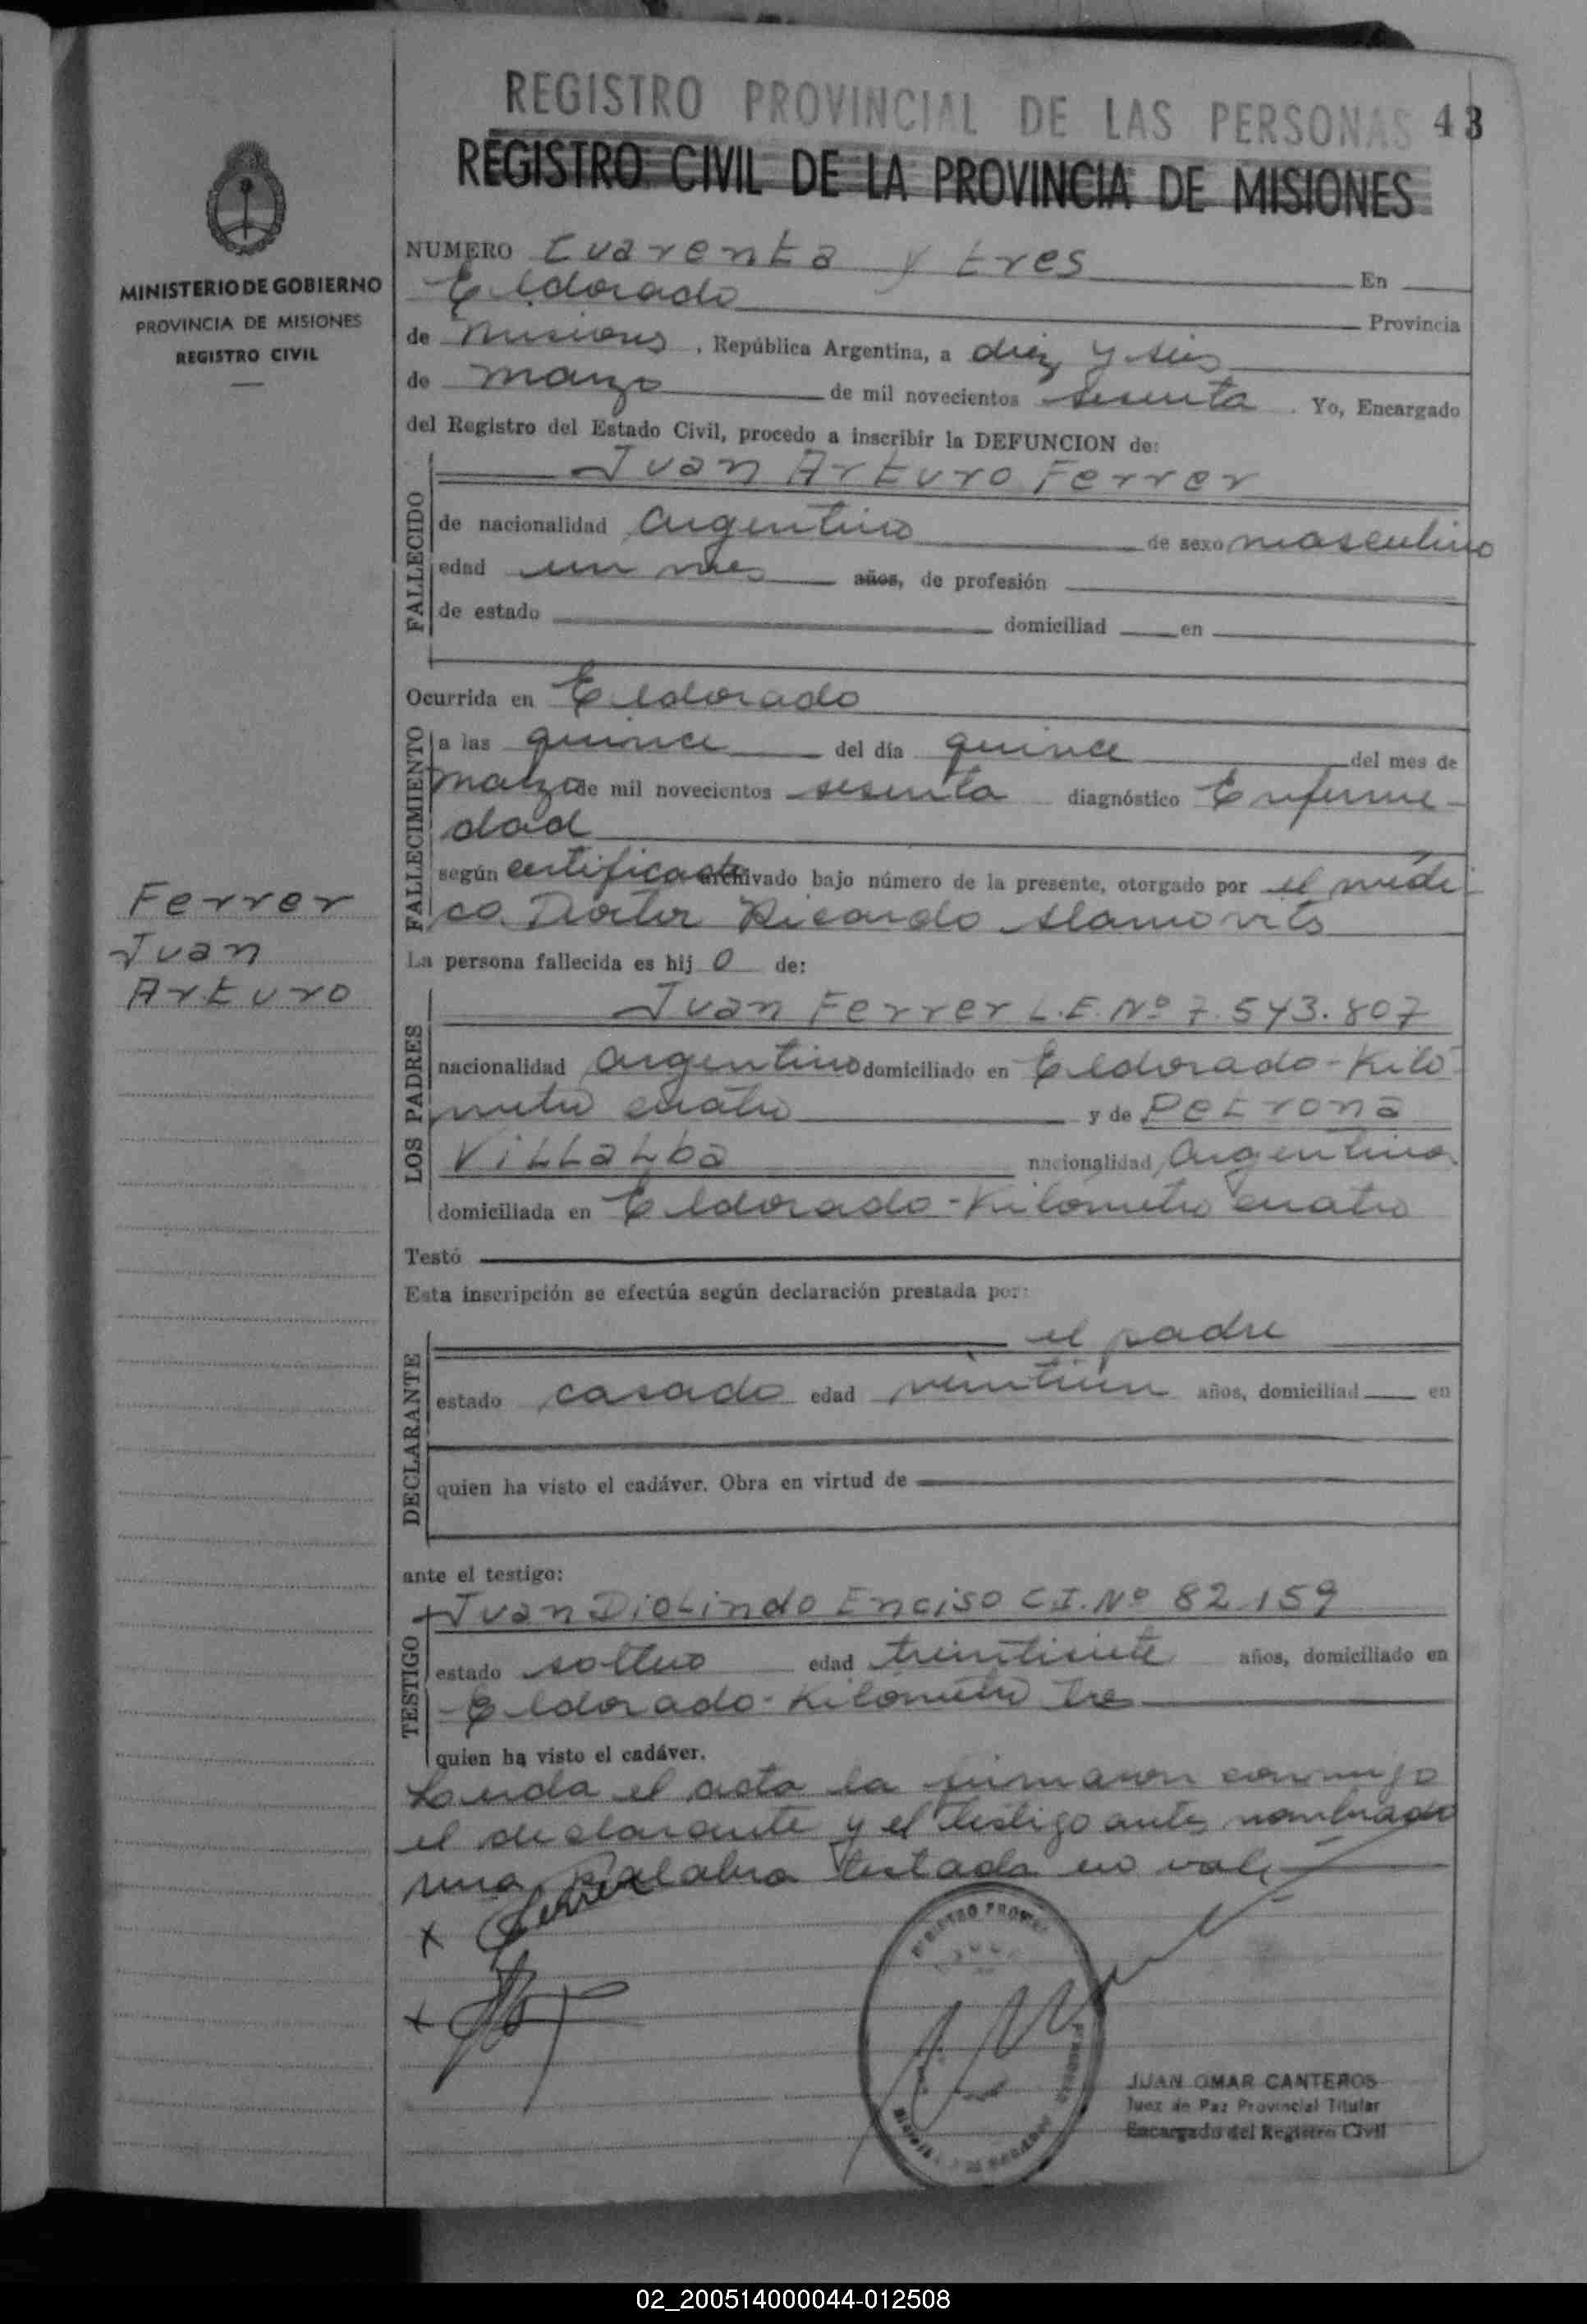 REGISTRO PROVINCIAL DE LAS PERSONAS 43
REGISTRO CIVIL DE LA PROVINCIA DE MISIONES
MINISTERIO DE GOBIERNO
PROVINCIA DE MISIONES
REGISTRO CIVIL
NUMERO Cuarenta y tres En
Eldorado Provincia
de Misiones, República Argentina, a diez y seis
de marzo de mil novecientos sesenta. Yo, Encargado
del Registro del Estado Civil, procedo a inscribir la DEFUNCION de:
FALLECIDO
Juan Arturo Ferrer
de nacionalidad argentino de sexo masculino
edad un mes años, de profesión
de estado domiciliad en
Ocurrida en Eldorado
FALLECIMIENTO
a las quince del día quince del mes de
marzo de mil novecientos sesenta diagnóstico Enferme-
dad
según certificado archivado bajo número de la presente, otorgado por el médi-
co Doctor Ricardo
Ferrer
Juan
Arturo
La persona fallecida es hij o de:
LOS PADRES
Juan Ferrer L.E. Nº 7.543.807
nacionalidad argentino domiciliado en Eldorado-Kiló-
metro cuatro y de Petrona
Villalba nacionalidad argentina
domiciliada en Eldorado-Kilómetro cuatro
Testó
Esta inscripción se efectúa según declaración prestada por:
DECLARANTE
el padre
estado casado edad veintiun años, domiciliad en
quien ha visto el cadáver. Obra en virtud de
ante el testigo:
TESTIGO
Juan Diolindo Enciso C.I. Nº 82.159
estado soltero edad treintisiete años, domiciliado en
Eldorado-Kilómetro tres
quien ha visto el cadáver.
Leida el acta la firmaron conmigo
el declarante y el testigo antes nombrado
una palabra testada no vale
x Ferrer
x
JUAN OMAR CANTEROS
Juez de Paz Provincial Titular
Encargado del Registro Civil
02_200514000044-012508